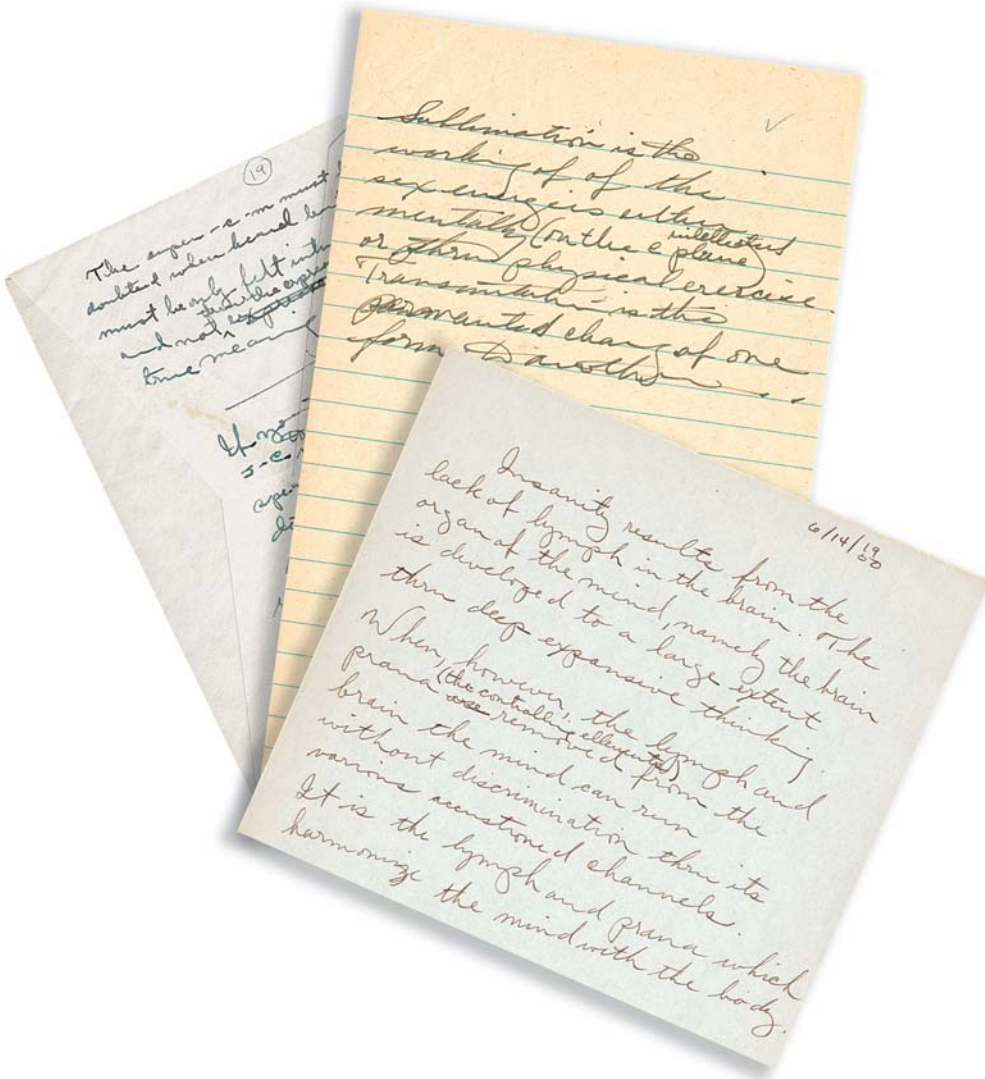 19
The super-e-m must
doubted when heard
must be only felt
thru the
and not
true meaning
If
J-C.
✓
Sublimation is the
working of of the
sex energies either
intellectual
mentally (on the plane)
or thru physical exercise.
Transmutation is the
permanted change of one
form to another...
6/14/19
00
Insanity results from the
lack of lymph in the brain. The
organ of the mind, namely the brain
is developed to a large extent
thru deep expansive thinking.
When, however, the lymph and
prana (the controlling ellements)
are removed from the
brain the mind can run
without discrimination thru its
various accustioned channels.
It is the lymph and prana which
harmonize the mind with the body.